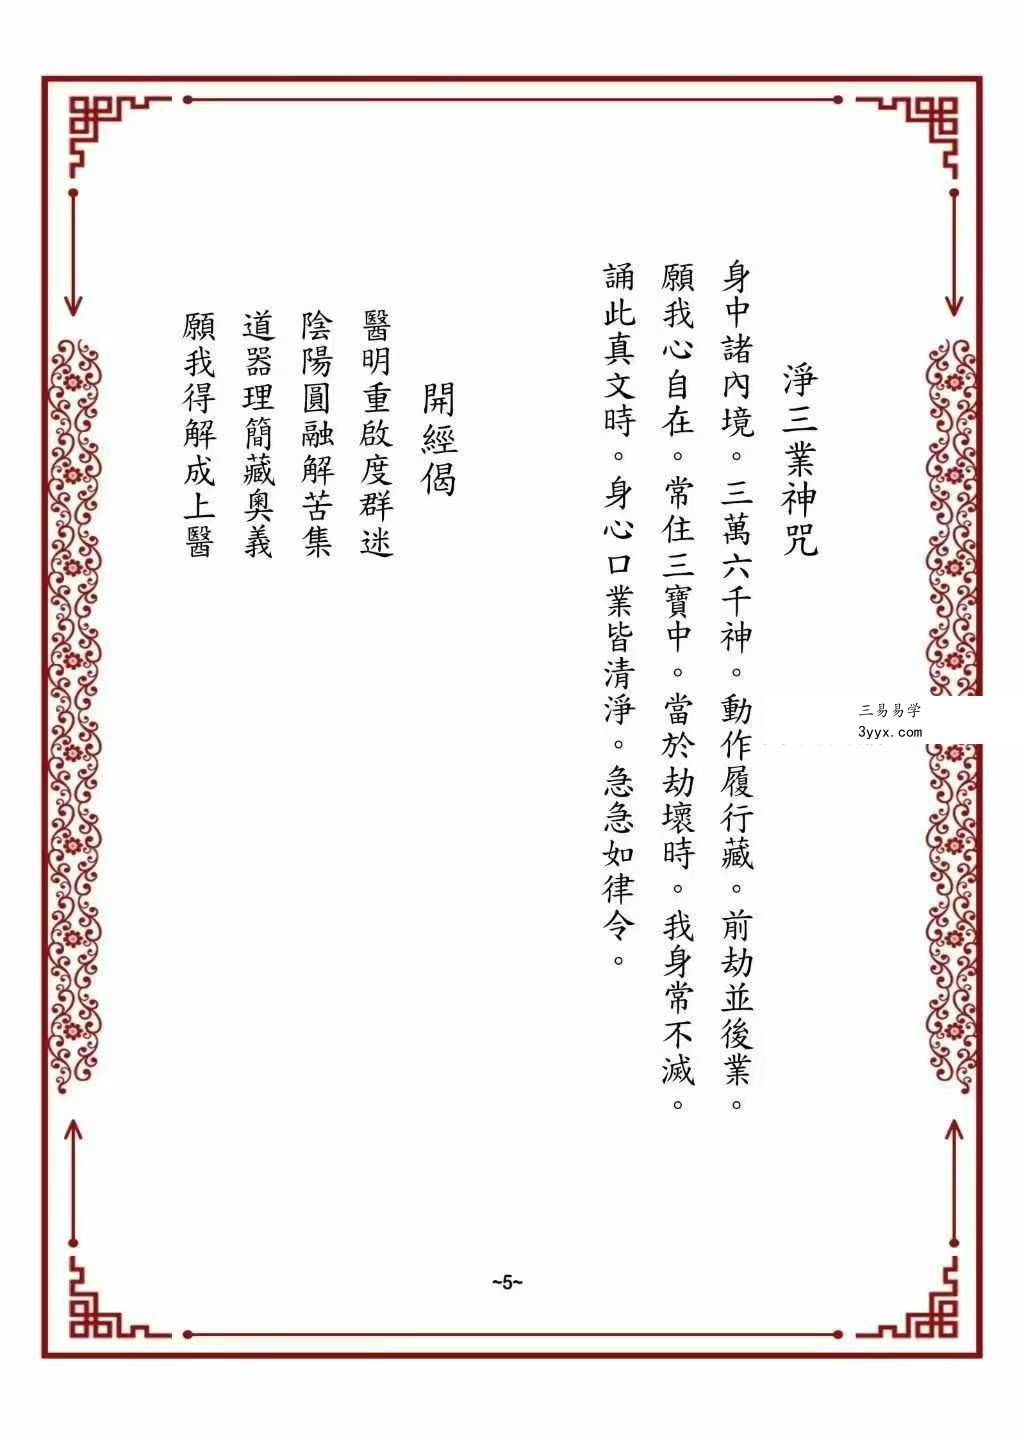 淨三業神咒
身中諸內境。三萬六千神。動作履行藏。前劫並後業。
願我心自在。常住三寶中。當於劫壞時。我身常不滅。
誦此真文時。身心口業皆清淨。急急如律令。
開經偈
醫明重啟度群迷
陰陽圓融解苦集
道器理簡藏奧義
願我得解成上醫
三易易学
3yyx.com
~5~